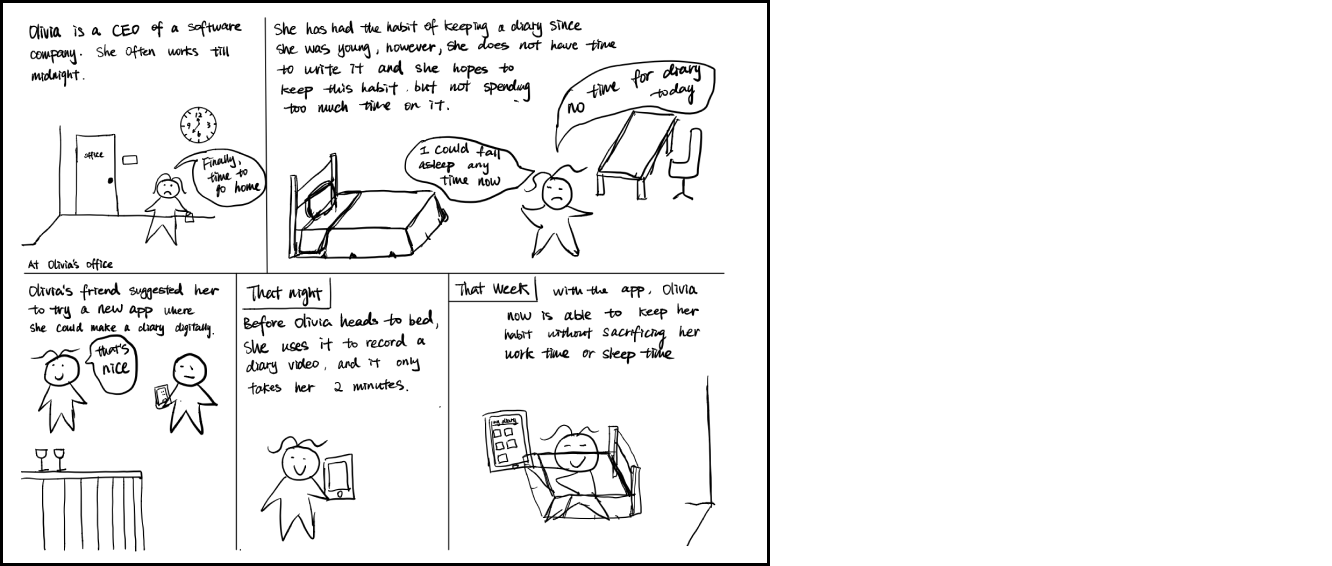 Olivia is a CEO of a software
company. She often works till
midnight.
12
9
3
6
office
Finally,
time to
go home
At Olivia's office
She has had the habit of keeping a diary since
she was young, however, she does not have time
to write it and she hopes to
keep this habit. but not spending
too much time on it.
I could fall
asleep any
time now
no time for diary
today
Olivia's friend suggested her
to try a new app where
she could make a diary digitally.
that's
nice
That night
Before Olivia heads to bed,
she uses it to record a
diary video, and it only
takes her 2 minutes.
That Week
with the app, Olivia
now is able to keep her
habit without sacrificing her
work time or sleep time
my diary